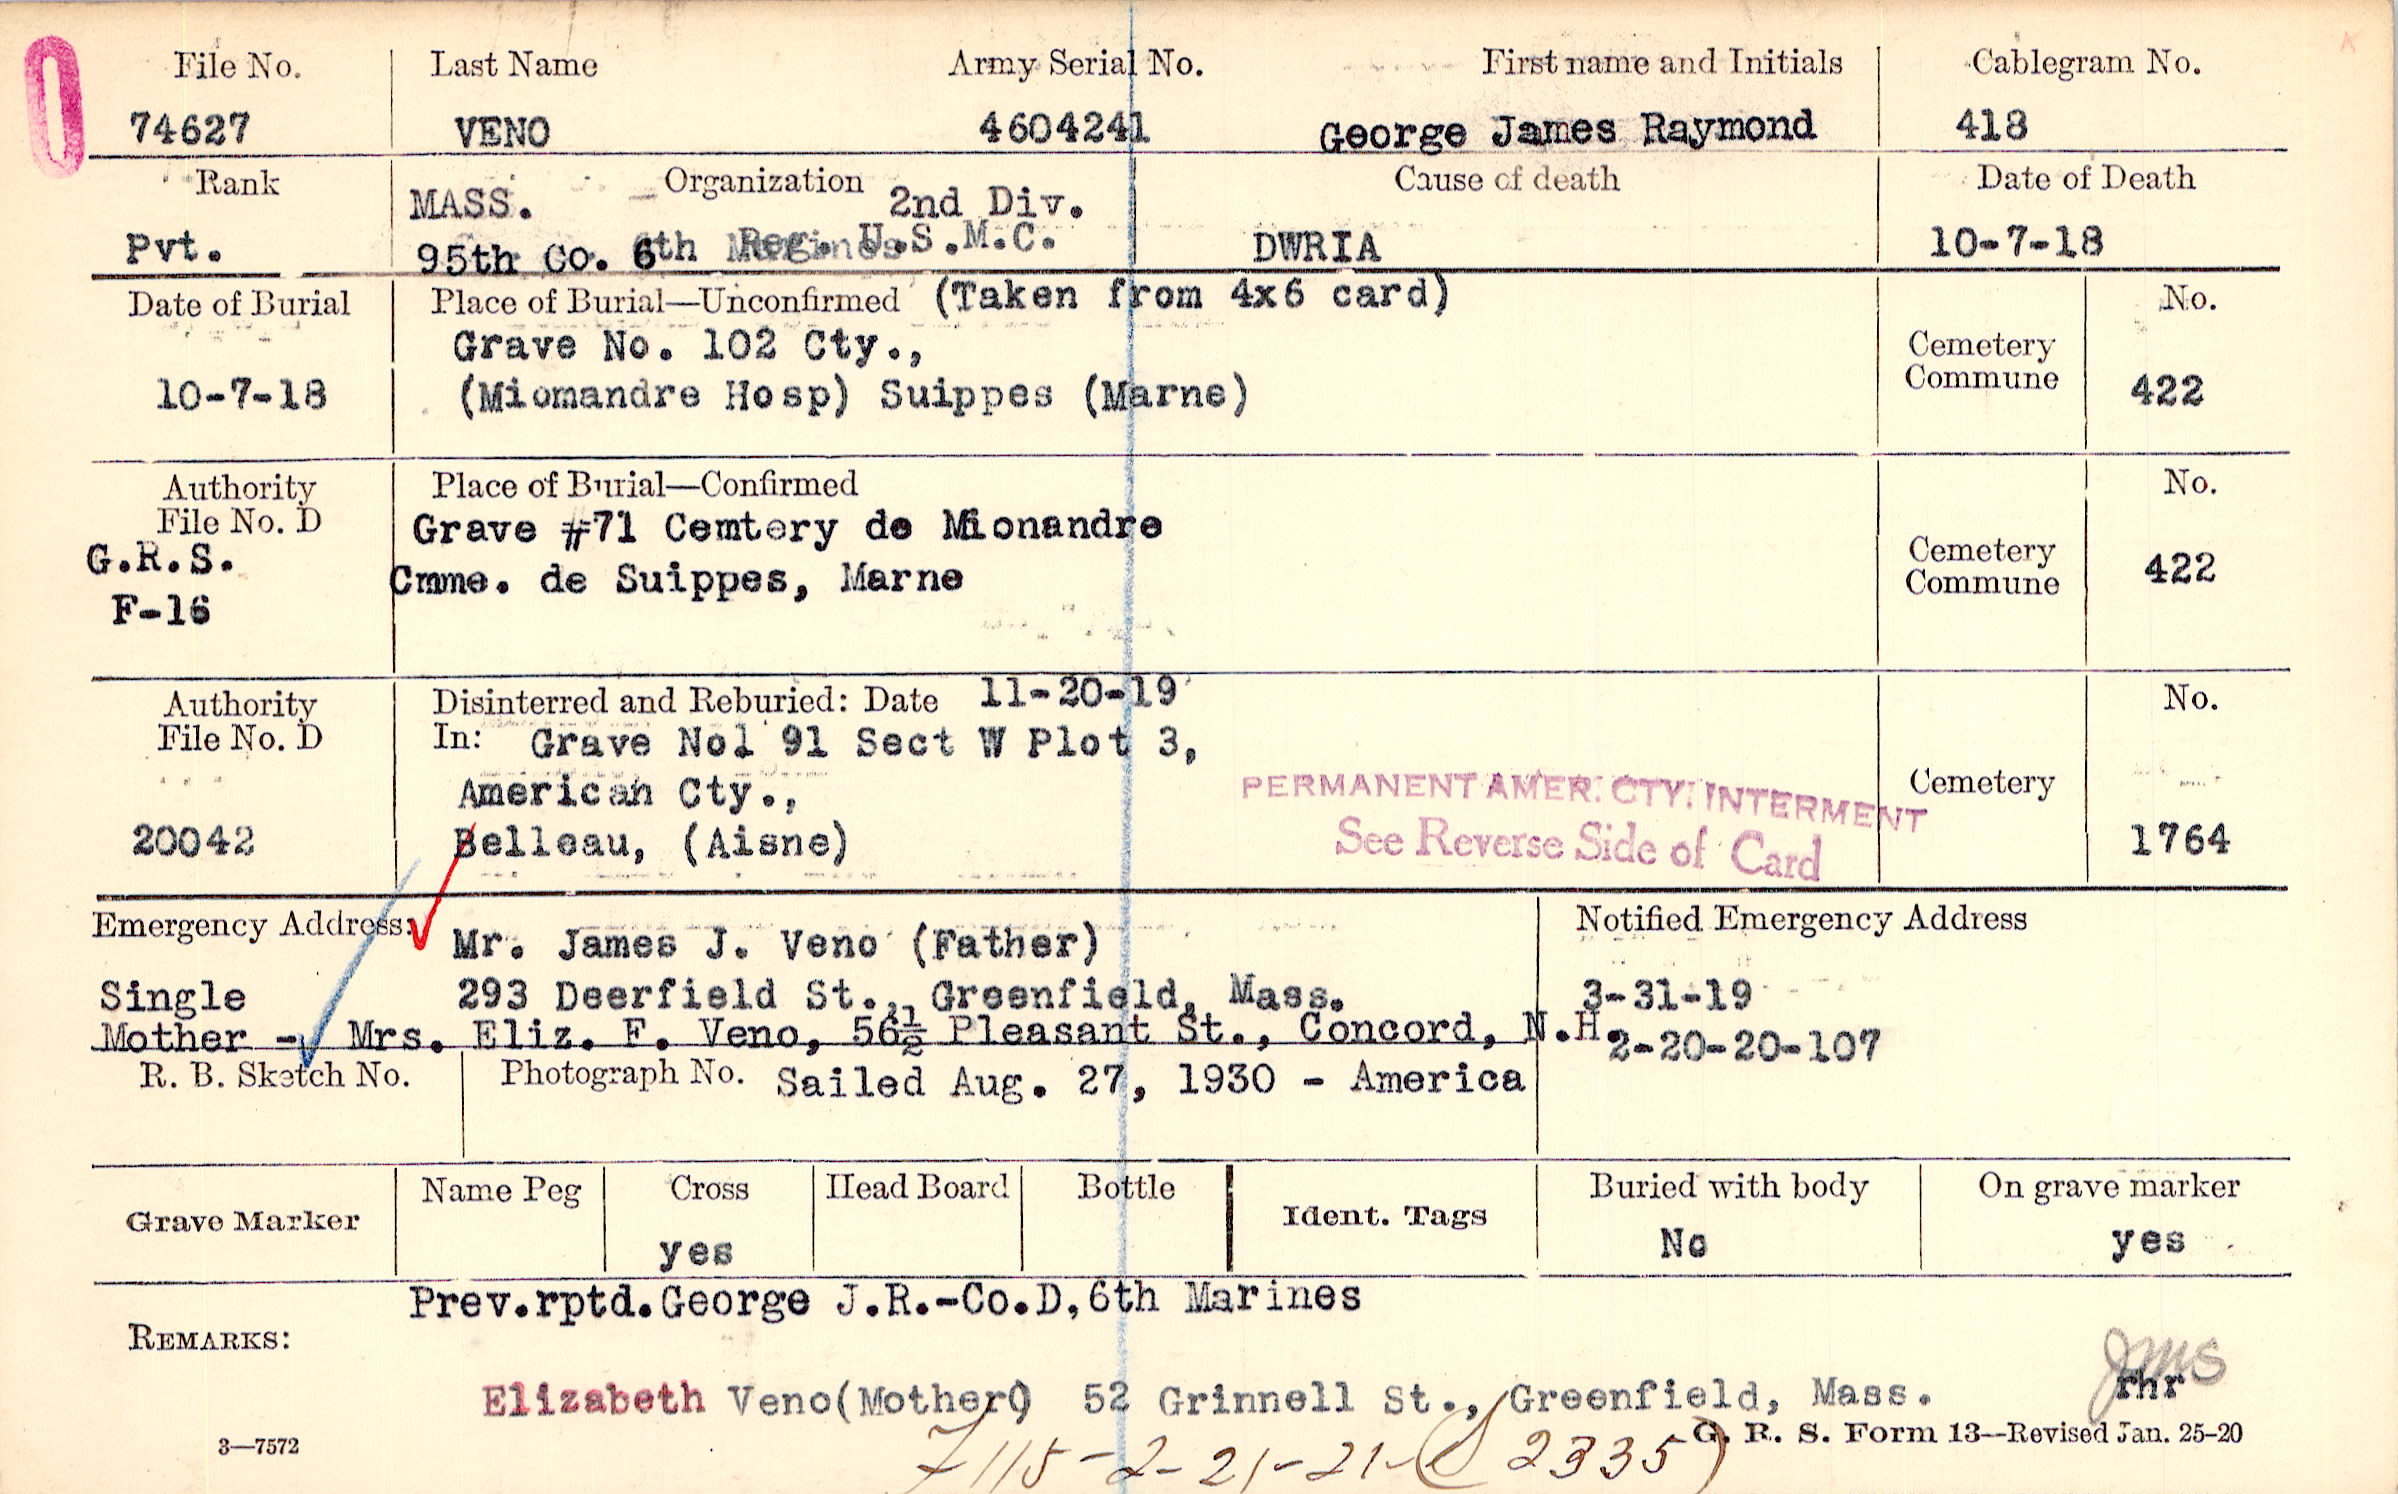 File No. Last Name Army Serial No. First name and Initials Cablegram No.
74627 VENO 4604241 George James Raymond 418
Rank Organization Cause of death Date of Death
MASS. 2nd Div.
Pvt. 95th Co. 6th Reg. U.S.M.C. DWRIA 10-7-18
Date of Burial Place of Burial—Unconfirmed (Taken from 4x6 card) No.
Grave No. 102 Cty., Cemetery
10-7-18 (Miomandre Hosp) Suippes (Marne) Commune 422
Authority Place of Burial—Confirmed No.
File No. D Grave #71 Cemtery de Mionandre
G.R.S. Cmme. de Suippes, Marne Cemetery Commune 422
F-16
Authority Disinterred and Reburied: Date 11-20-19 No.
File No. D In: Grave No1 91 Sect W Plot 3,
American Cty., PERMANENT AMER. CTY. INTERMENT Cemetery
20042 Belleau, (Aisne) See Reverse Side of Card 1764
Emergency Address: Mr. James J. Veno (Father) Notified Emergency Address
Single 293 Deerfield St., Greenfield, Mass. 3-31-19
Mother - Mrs. Eliz. F. Veno, 56½ Pleasant St., Concord, N.H. 2-20-20-107
R. B. Sketch No. Photograph No. Sailed Aug. 27, 1930 - America
Grave Marker Name Peg Cross Head Board Bottle Ident. Tags Buried with body On grave marker
yes No yes
Prev.rptd.George J.R.-Co.D,6th Marines
REMARKS:
JMS
Elizabeth Veno(Mother) 52 Grinnell St., Greenfield, Mass. rhr
3—7572 G. R. S. Form 13—Revised Jan. 25-20
7115-2-21-21-( 2335)